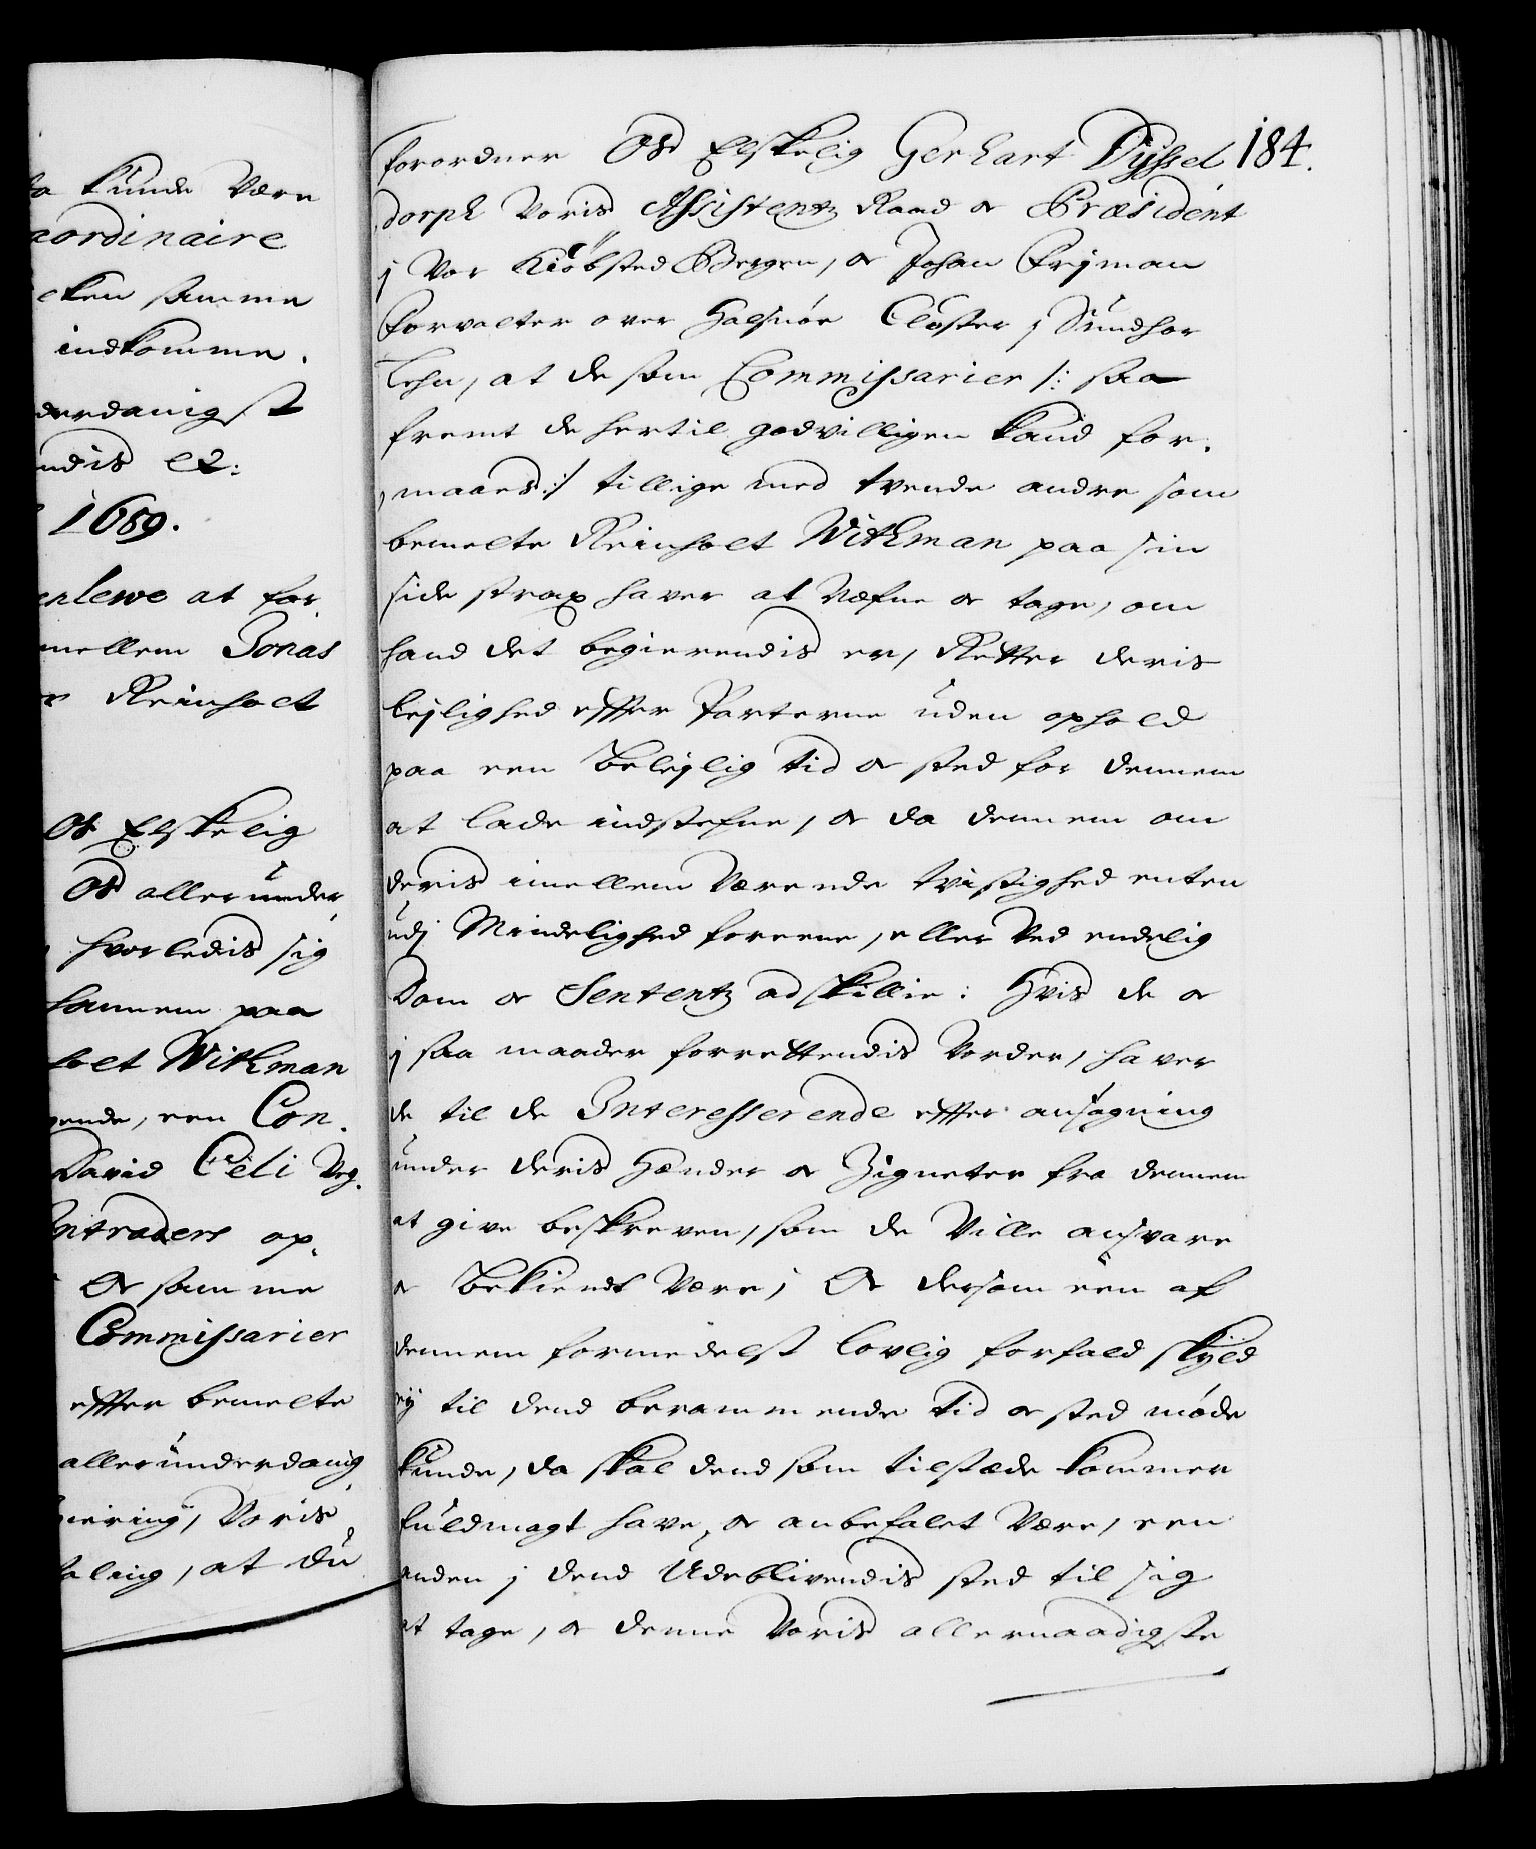 a kunde Være
aordinaire
cken samme
indkomme.
derdanigst
ndis etc:
1689.
enlewe at for
mellem Jonas
Reinholt
Os Elskelig
Os allerunder
hvorledis sig
hannem paa
holt Withman
gende, een Con.
David Celi Veg.
Intraders op.
Or samme
Commissarier
effter bemelte
allerunderdanig
giering, Voris
faling, at du
184.
forordner Os Elskelig Gerhart Dyssel
dorph Voris Assistentz Raad oc Præsident
j Vor Kiøbsted Bergen, oc Johan Fryman
Forvalter over Halsnøe Closter j Sundhor
Lehn, at de som Commissarier /: saa
fremt de hertil godvilligen kand for.
maaes :/ tillige med tvende andre som
bemelte Reinholt Withman paa sin
side strax haver at Næfne oc tage, om
hand det begierendis er, Retter deris
lejlighed effter Parterne uden ophold
paa een belejlig tid oc sted for dennem
at lade indstefne, oc da dennem om
deris imellem Værende tvistighed enten
udj Mindelighed foreene, eller Ved endelig
Dom oc Sententz adskillie: Hvis de oc
j saa maader forrettendis Vorder, haver
de til de Interesserende effter ansøgning
under deris Hænder oc Zigneter fra dennem
at give beskreven, som de Ville ansvare
oc bekiendt Være; Oc dersom een af
dennem formedelst lovlig forfald skyld
ej til dend berammende tid oc sted møde
kunde, da skal dend som tilstæde kommer
fuldmagt have, oc anbefalet Være, een
anden j dend Udeblivendis sted til sig
at tage, oc denne Voris allernaadigste